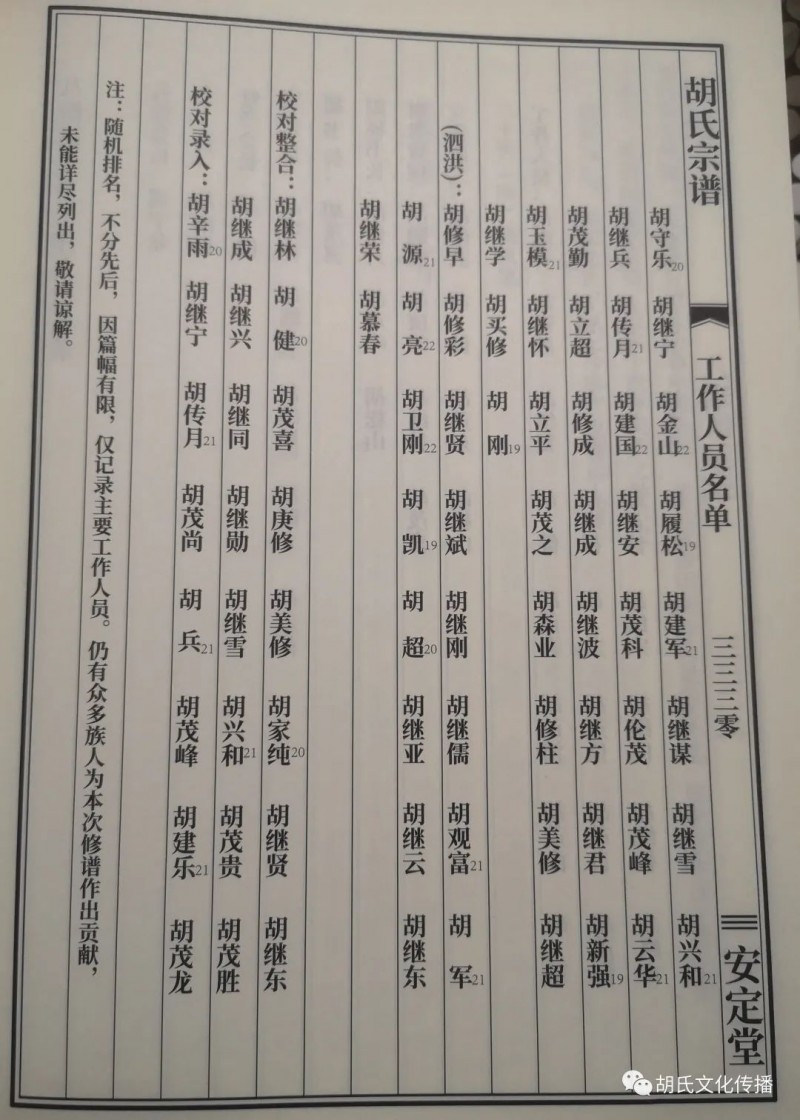 胡氏宗谱 工作人员名单 三三三零 安定堂
胡守乐20 胡继宁 胡金山22 胡履松19 胡建军21 胡继谋 胡继雪 胡兴和21
胡继兵 胡传月21 胡建国22 胡继安 胡茂科 胡伦茂 胡茂峰 胡云华21
胡茂勤 胡立超 胡修成 胡继成 胡继波 胡继方 胡继君 胡新强19
胡玉模21 胡继怀 胡立平 胡茂之 胡森业 胡修柱 胡美修 胡继超
胡继学 胡买修 胡刚19
(泗洪)：胡修早 胡修彩 胡继贤 胡继斌 胡继刚 胡继儒 胡观富21 胡军21
胡源21 胡亮22 胡卫刚22 胡凯19 胡超20 胡继亚 胡继云 胡继东
胡继荣 胡慕春
校对整合：胡继林 胡健20 胡茂喜 胡庚修 胡美修 胡家纯20 胡继贤 胡继东
胡继成 胡继兴 胡继同 胡继勋 胡继雪 胡兴和21 胡茂贵 胡茂胜
校对录入：胡辛雨20 胡继宁 胡传月21 胡茂尚 胡兵21 胡茂峰 胡建乐21 胡茂龙
注：随机排名，不分先后，因篇幅有限，仅记录主要工作人员。仍有众多族人为本次修谱作出贡献，
未能详尽列出，敬请谅解。
胡氏文化传播